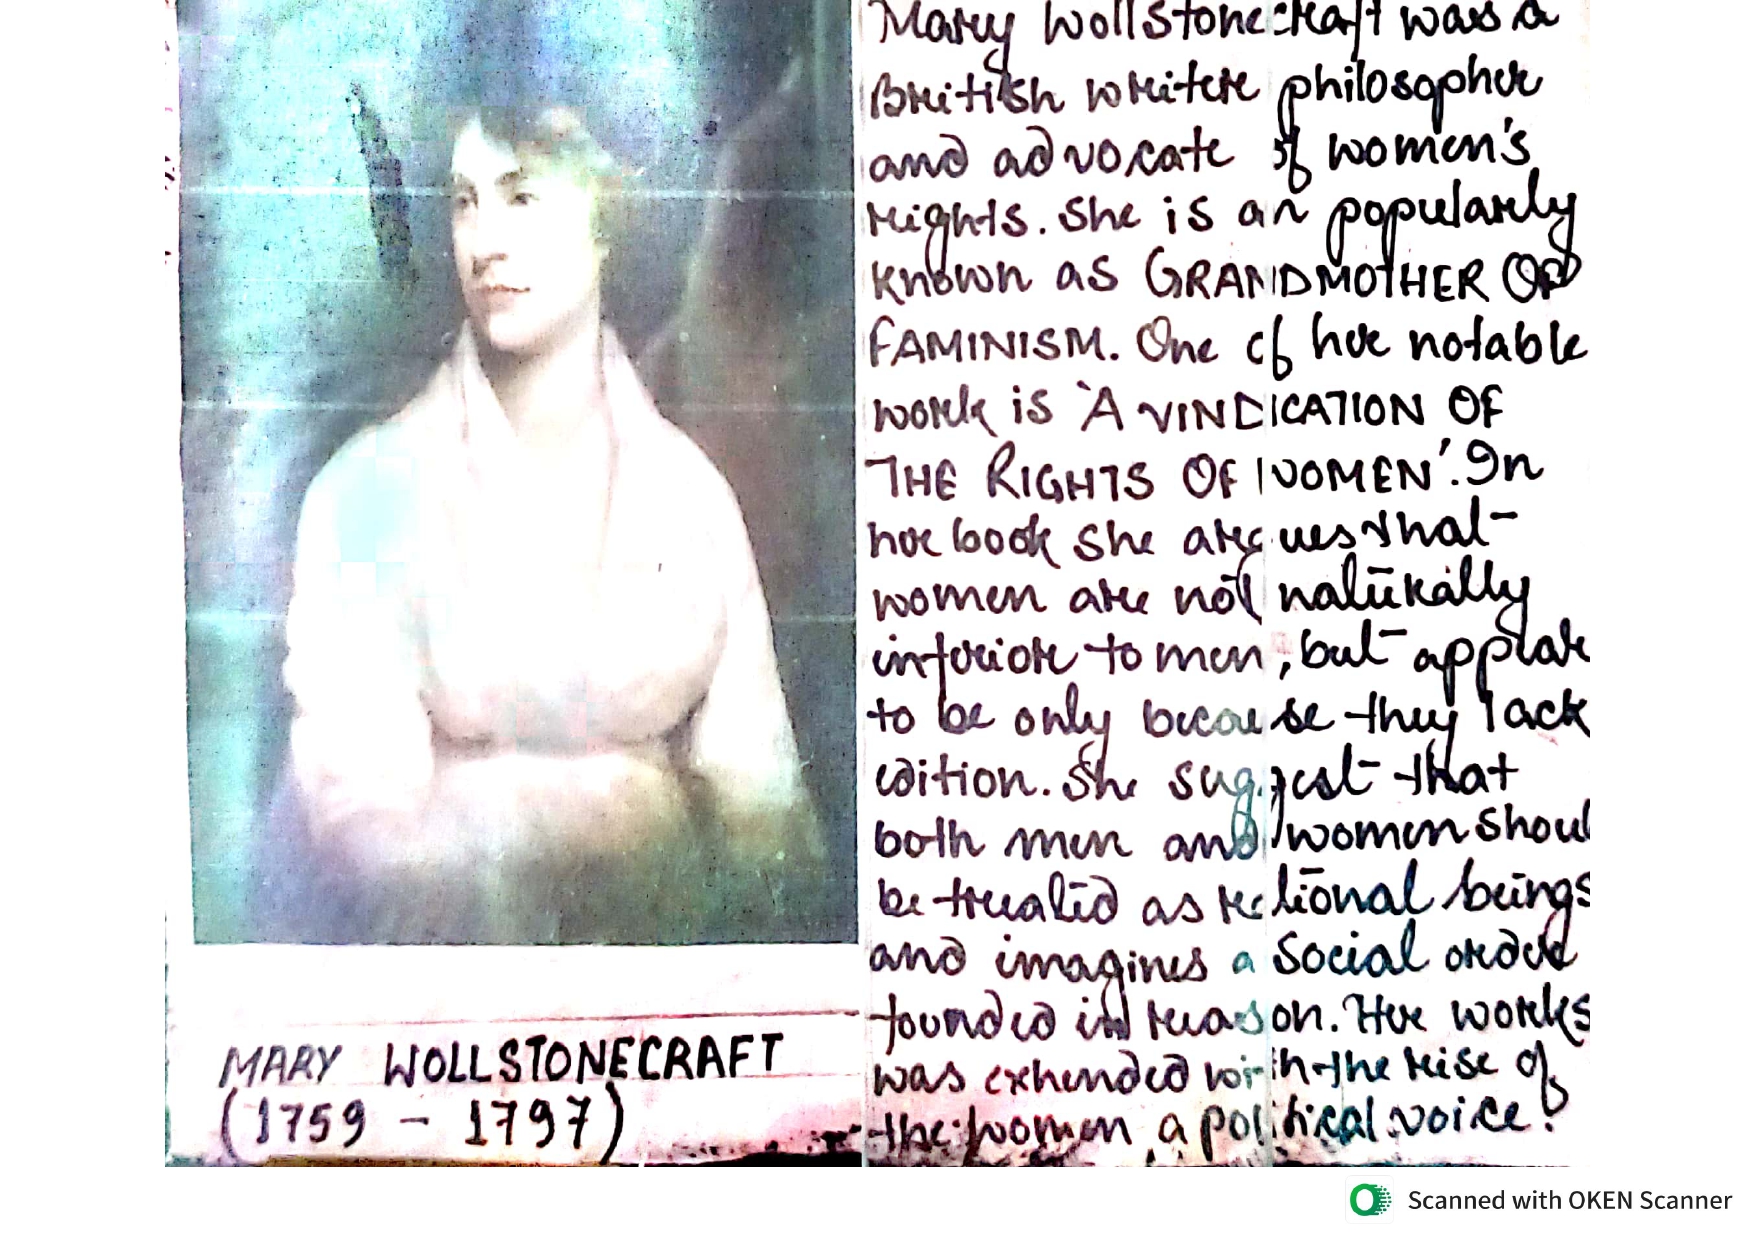 Mary Wollstonecraft was a
British writer philosopher
and advocate of women's
rights. She is an popularly
known as GRANDMOTHER OF
FAMINISM. One of her notable
work is 'A VINDICATION OF
THE RIGHTS OF WOMEN'. In
her book she argues that
women are not naturally
inferior to men, but appear
to be only because they lack
edition. She suggest that
both men and women shoul
be treated as rational beings
and imagines a Social order
founded in reason. Her works
was exhended with the rise of
the women a political voice.
MARY WOLLSTONECRAFT
(1759 - 1797)
Scanned with OKEN Scanner